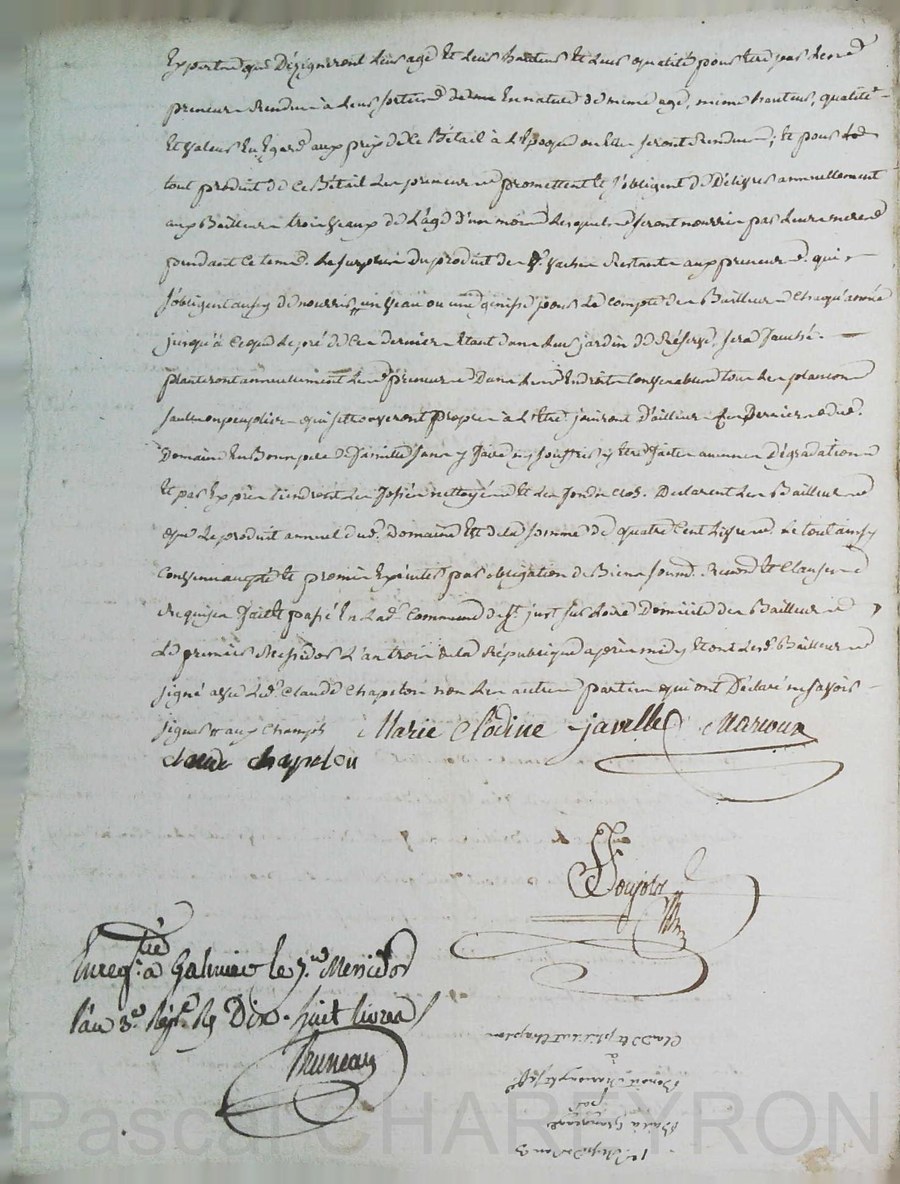 Experts qui désigneront leur age et leur hauteur et leur qualité pour être par les d
preneurs rendu à leur sortie de en nature de même age, même hauteur, qualité
et valeur eu égard aux prix de ce Bétail à l'époque ou elle seront rendues; et pour
tout produit de ce Bétail les preneurs promettent et s'obligent de délivrer annuellement
aux Bailleurs trois veaux de l'age d'un mois lesquels seront nourris par leurs meres
pendant ce tems. le surplus du produit des vaches restante aux preneurs. qui
s'obligent aussy de nourrir un veau ou une genisse pour le compte des Bailleurs chaqu'année
jusqu'à ce que le pré de ces derniers étant dans leur jardin de Réserve, sera fauché.
planteront annuellement les preneurs dans les endroits convenables tous les plançons
saule ou peuplier qui se trouveront propre à l'être jouiront d'ailleurs ces derniers dud.
Domaine en Bons pere de famille sans y faire ny souffrir y être faite aucunes dégradations
et par exprès tiendront les fossés nettoyés et les fonds clos. Declarent les Bailleurs
que le produit annuel dud. Domaine est de la somme de quatre cent livres. le tout ainsy
convenu accepté et promis exécuter par obligation de Biens soumd. renond et clauses
requises fait et passé en lad. Commune de St. just sur Loire Domicile des Bailleurs
le premier Messidor l'an trois de la République après midy et ont lesd. Bailleurs
signé avec led. Claude Chapelon non les autres parties qui ont déclaré ne savoir
signer aux champs Marie Clodine javelle Marcoux
claude chapelon
Enreg. à Galmier le 7. Messidor
l'an 3.e Rç Dix-huit livres
Bruneau
1er Messidor an 3
Bail à
par
à
Claude Chapelon
Pascal CHAREYRON